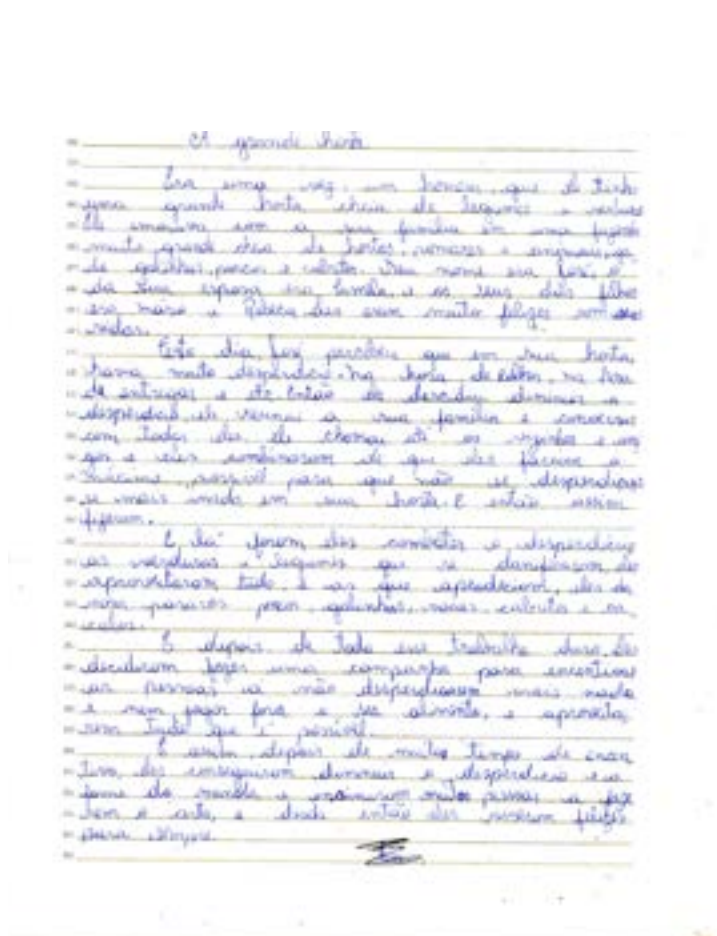 A grande horta
Era uma vez, um homem, que ele tinh
uma grande horta cheia de legumes e verdura
Ele morava com a sua família em uma fazenda
muito grande cheia de hortas, pomares e
de galinhas, porcos e cabritos. Seu nome era José, o
da sua esposa era Camila, e os seus dois filhos
era Mário e Rebeca eles eram muito felizes com sua
vidas.
Certo dia, José percebeu que em sua horta,
havia muito desperdício. Na hora de colher, na hora
de entregar e etc. Então ele decidiu diminuir o
desperdício, ele reuniu a sua família e conversou
com todos eles, ele chamou até os vizinhos e ami
gos e eles combinaram de que eles fariam o
máximo possível para que não se desperdiças
se mais nada em sua horta. E então assim
fizeram.
E lá foram eles combater o desperdício
as verduras e legumes que se danificaram, eles
aproveitaram tudo, e as que apodreciam, eles da
vam para os porcos, galinhas, vacas, cabritos e os
E depois de todo esse trabalho duro, eles
decidiram fazer uma campanha para incentivar
as pessoas a não desperdiçarem mais nada
e nem jogar fora o seu alimento, e aproveita
rem tudo que é possível.
E assim depois de muito tempo de
tivo, eles conseguiram diminuir o desperdício e a
fome do mundo e muitas pessoas a faze
rem o certo, e desde então eles viveram felizes
para sempre.